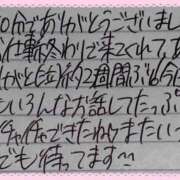 0分でありがとうございまし
お仕事終わりで来てくれてあ
がとう約2週間ぶと今日
いろんなお話してたっぷ
チャイチャできたねまたいっ
でも待ってます〜